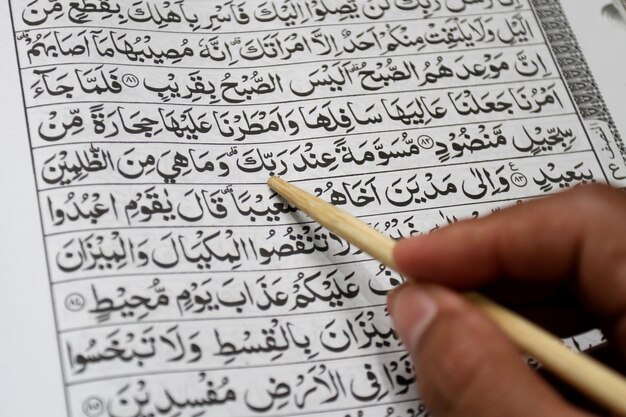 رَبِّكَ لَنْ يَّصِلُوْٓا اِلَيْكَ فَاَسْرِ بِاَهْلِكَ بِقِطْعٍ مِّنَ
الَّيْلِ وَلَا يَلْتَفِتْ مِنْكُمْ اَحَدٌ اِلَّا امْرَاَتَكَۗ اِنَّهٗ مُصِيْبُهَا مَآ اَصَابَهُمْۗ
اِنَّ مَوْعِدَهُمُ الصُّبْحُۗ اَلَيْسَ الصُّبْحُ بِقَرِيْبٍ ٨١ فَلَمَّا جَاۤءَ
اَمْرُنَا جَعَلْنَا عَالِيَهَا سَافِلَهَا وَاَمْطَرْنَا عَلَيْهَا حِجَارَةً مِّنْ
سِجِّيْلٍ مَّنْضُوْدٍ ٨٢ مُّسَوَّمَةً عِنْدَ رَبِّكَۗ وَمَا هِيَ مِنَ الظّٰلِمِيْنَ
بِبَعِيْدٍ ٨٣ وَاِلٰى مَدْيَنَ اَخَاهُمْ شُعَيْبًاۗ قَالَ يٰقَوْمِ اعْبُدُوا
وَلَا تَنْقُصُوا الْمِكْيَالَ وَالْمِيْزَانَ
عَلَيْكُمْ عَذَابَ يَوْمٍ مُّحِيْطٍ ٨٤
بِالْقِسْطِ وَلَا تَبْخَسُوا
فِى الْاَرْضِ مُفْسِدِيْنَ ٨٥